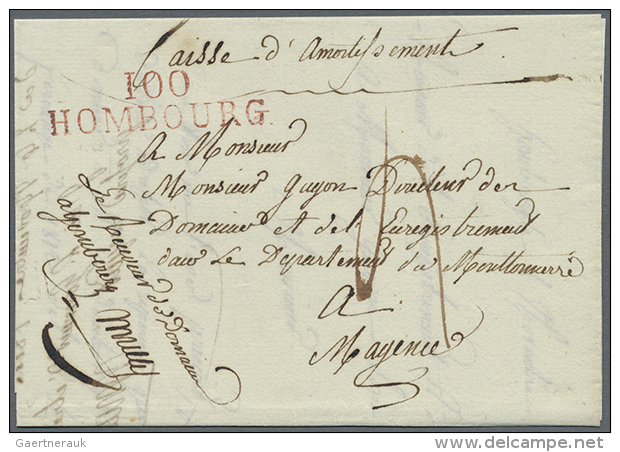 Caisse d'Amortissement
100
HOMBOURG
A Monsieur
Monsieur Guyon Directeur des
Domaines et de l'Enregistrement
dans Le Departement du Monttonnerre
A
Mayence
Le Receveur des Domaines
a hombourg
Gaertnerauk
www.delcampe.net